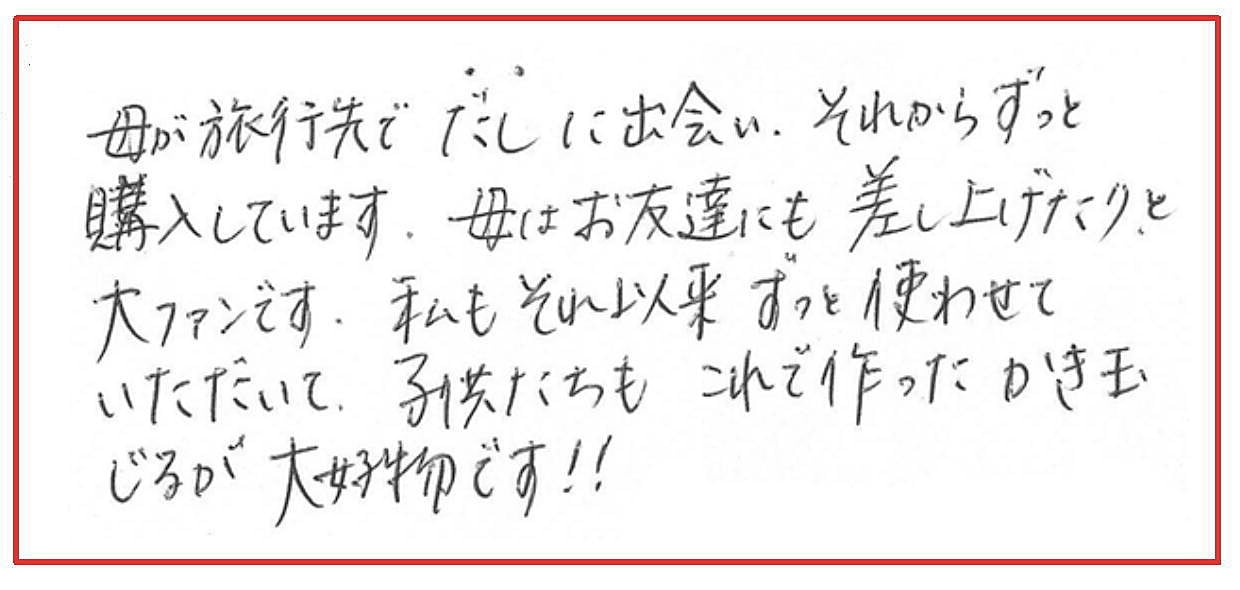 母が旅行先でだしに出会い、それからずっと
購入しています。母はお友達にも差し上げたりと
大ファンです。私もそれ以来ずっと使わせて
いただいて、子供たちもこれで作ったかき玉
じるが大好物です!!